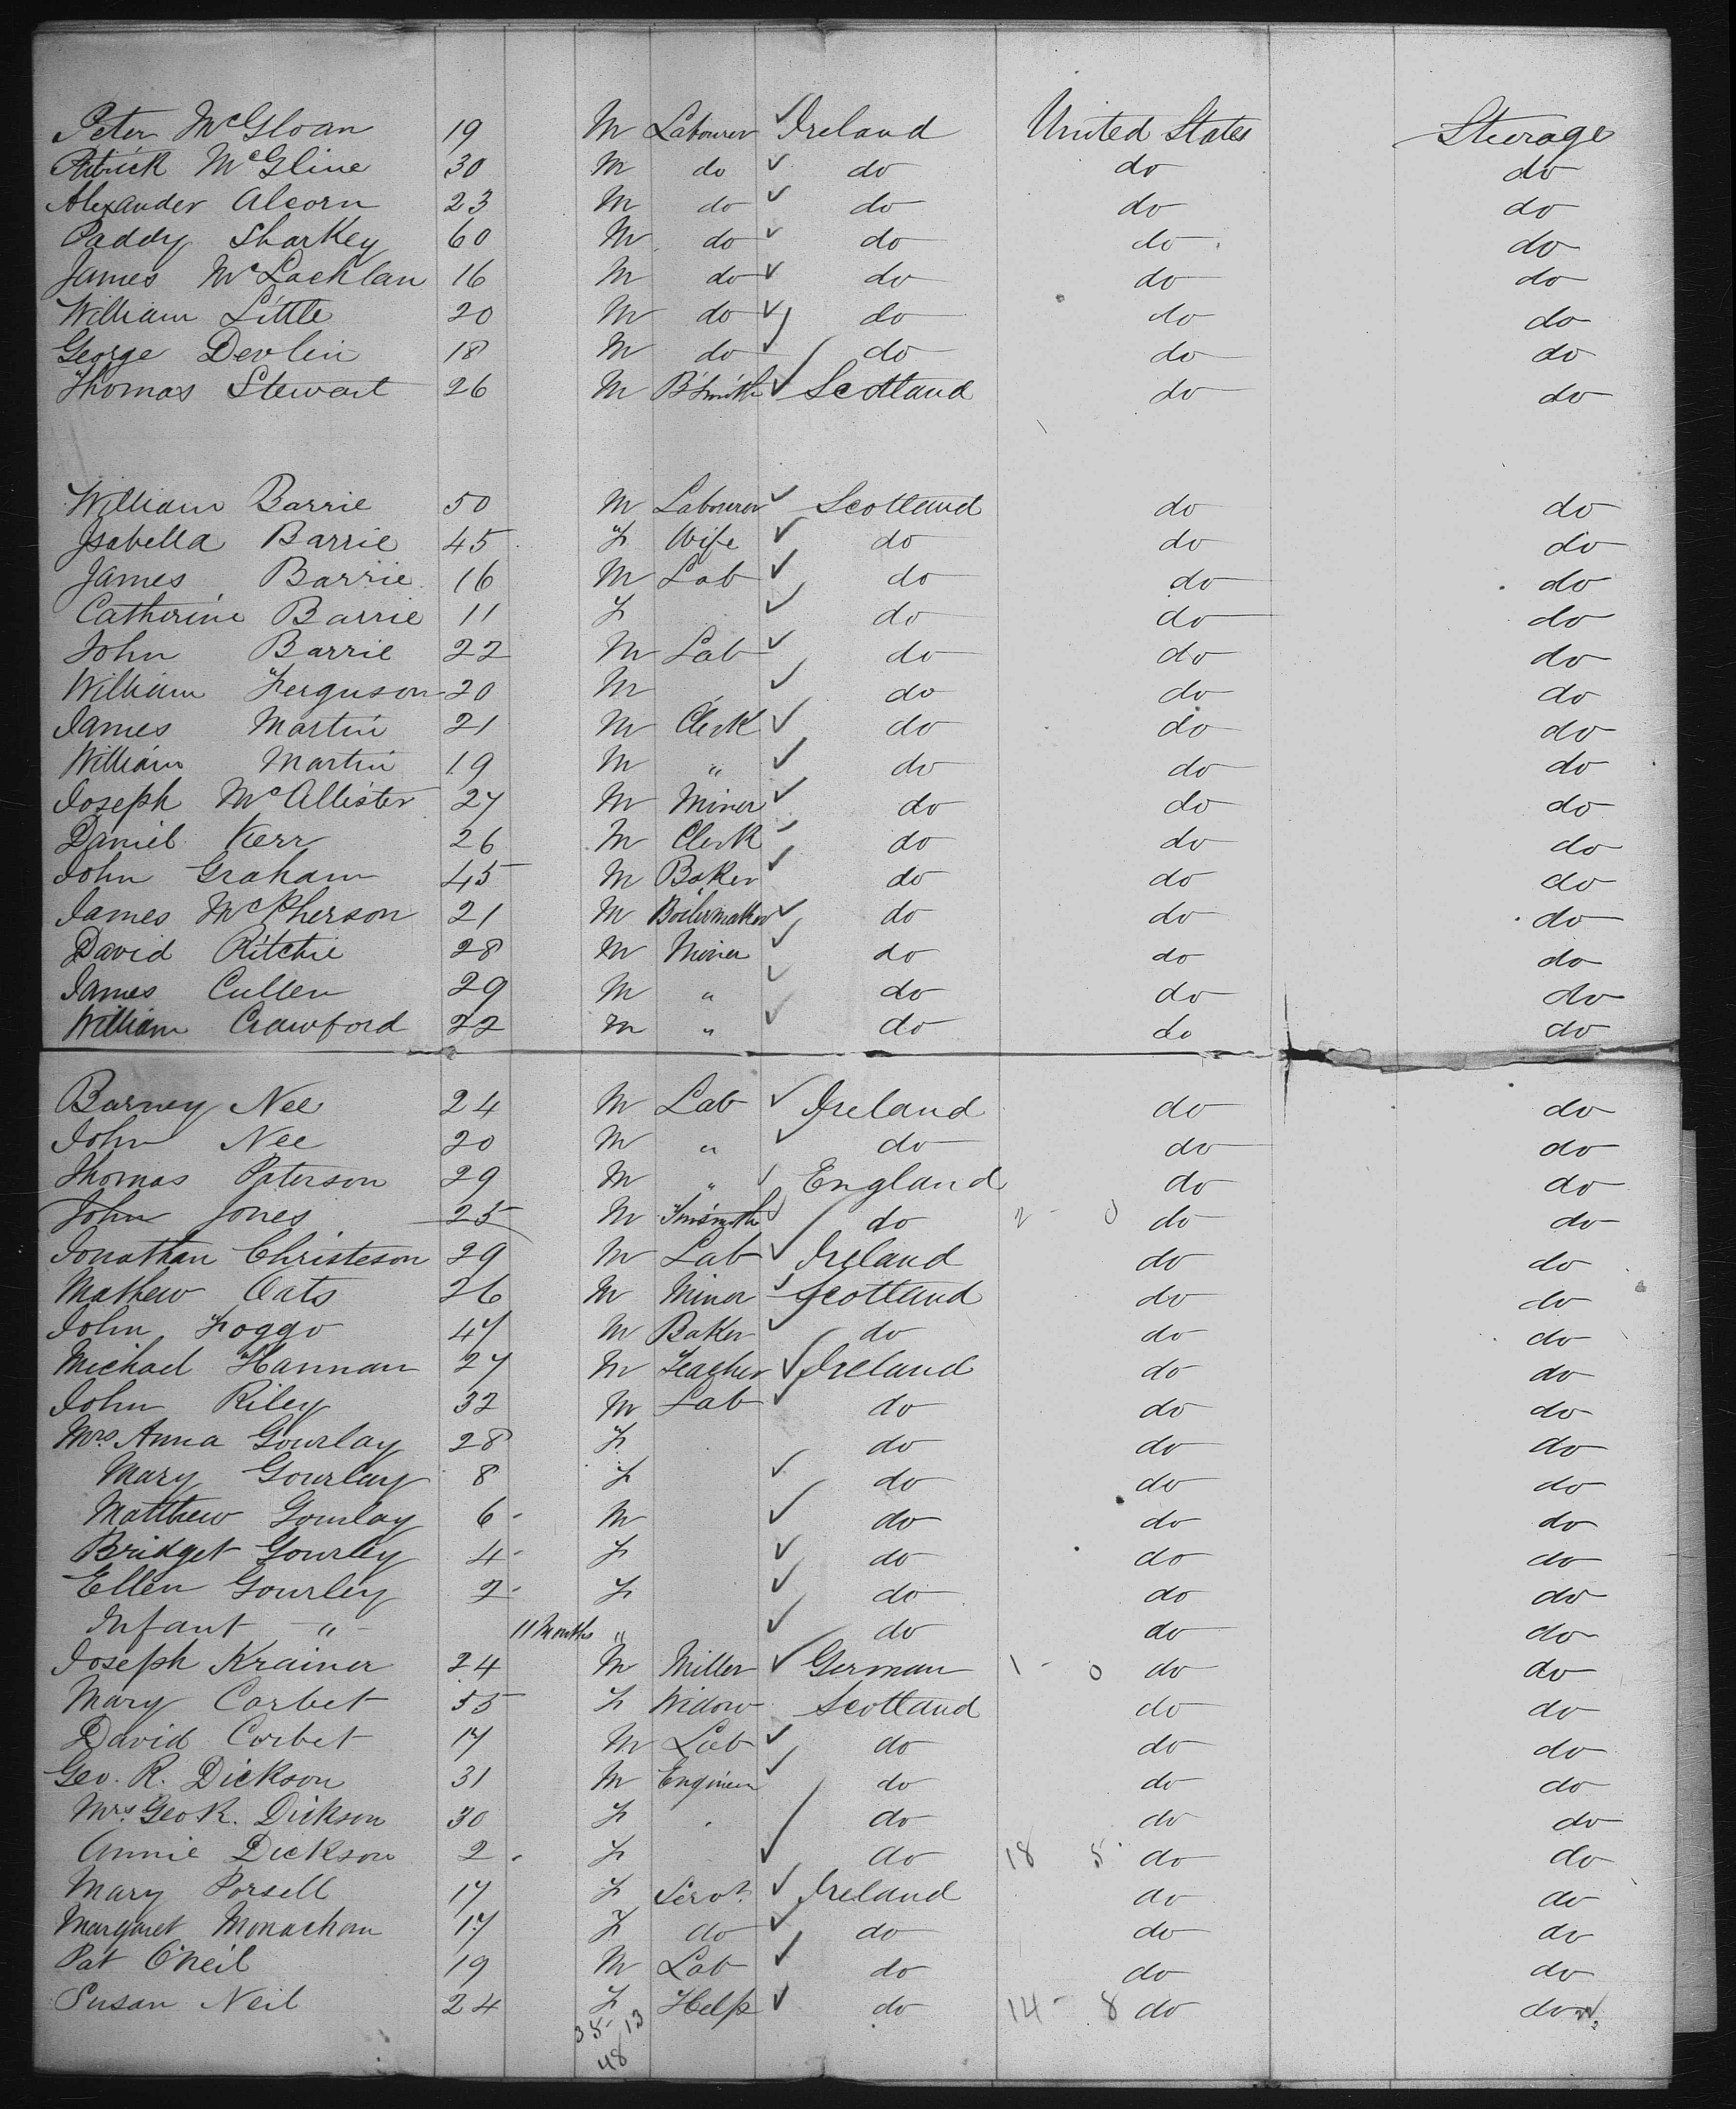 Peter McGloan 19 M Labourer ✓ Ireland United States Sturage
Patrick McGline 30 M do ✓ do do do
Alexander Alcorn 23 M do ✓ do do do
Paddy Sharkey 60 M do ✓ do do do
James McLachlan 16 M do ✓ do do do
William Little 20 M do ✓ do do do
George Devlin 18 M do ✓ do do do
Thomas Stewart 26 M B'Smith ✓ Scotland do do
William Barrie 50 M Labourer ✓ Scotland do do
Isabella Barrie 45 F Wife ✓ do do do
James Barrie 16 M Lab ✓ do do do
Catherine Barrie 11 F ✓ do do do
John Barrie 22 M Lab ✓ do do do
William Ferguson 20 M ✓ do do do
James Martin 21 M Clerk ✓ do do do
William Martin 19 M " ✓ do do do
Joseph McAllister 27 M Miner ✓ do do do
Daniel Kerr 26 M Clerk ✓ do do do
John Graham 45 M Baker ✓ do do do
James McPherson 21 M Boilermaker ✓ do do do
David Ritchie 28 M Miner ✓ do do do
James Cullen 29 M " ✓ do do do
William Crawford 22 M " ✓ do do do
Barney Nee 24 M Lab ✓ Ireland do do
John Nee 20 M " ✓ do do do
Thomas Paterson 29 M " ✓ England do do
John Jones 25 M Tinsmith ✓ do 2 - 0 do do
Jonathan Christeson 29 M Lab ✓ Ireland do do
Mathew Oats 26 M Miner ✓ Scotland do do
John Foggo 47 M Baker ✓ do do do
Michael Hannan 27 M Teacher ✓ Ireland do do
John Riley 32 M Lab ✓ do do do
Mrs Anna Gourlay 28 F do do do
Mary Gourlay 8 F ✓ do do do
Matthew Gourlay 6 - M ✓ do do do
Bridget Gourley 4 - F ✓ do do do
Ellen Gourley 2 - F ✓ do do do
Infant " 11 Months " ✓ do do do
Joseph Krainer 24 M Miller ✓ German 1 - 0 do do
Mary Corbet 55 F Widow Scotland do do
David Corbet 17 M Lab ✓ do do do
Geo. R. Dickson 31 M Engineer ✓ do do do
Mrs Geo R. Dickson 30 F do do do
Annie Dickson 2 . F ✓ do 18 5 do do
Mary Porsell 17 F Servt ✓ Ireland do do
Margaret Monachan 17 F do ✓ do do do
Pat O'Neil 19 M Lab ✓ do do do
Susan Neil 24 F Help ✓ do 14 - 8 do do
35 - 13
48